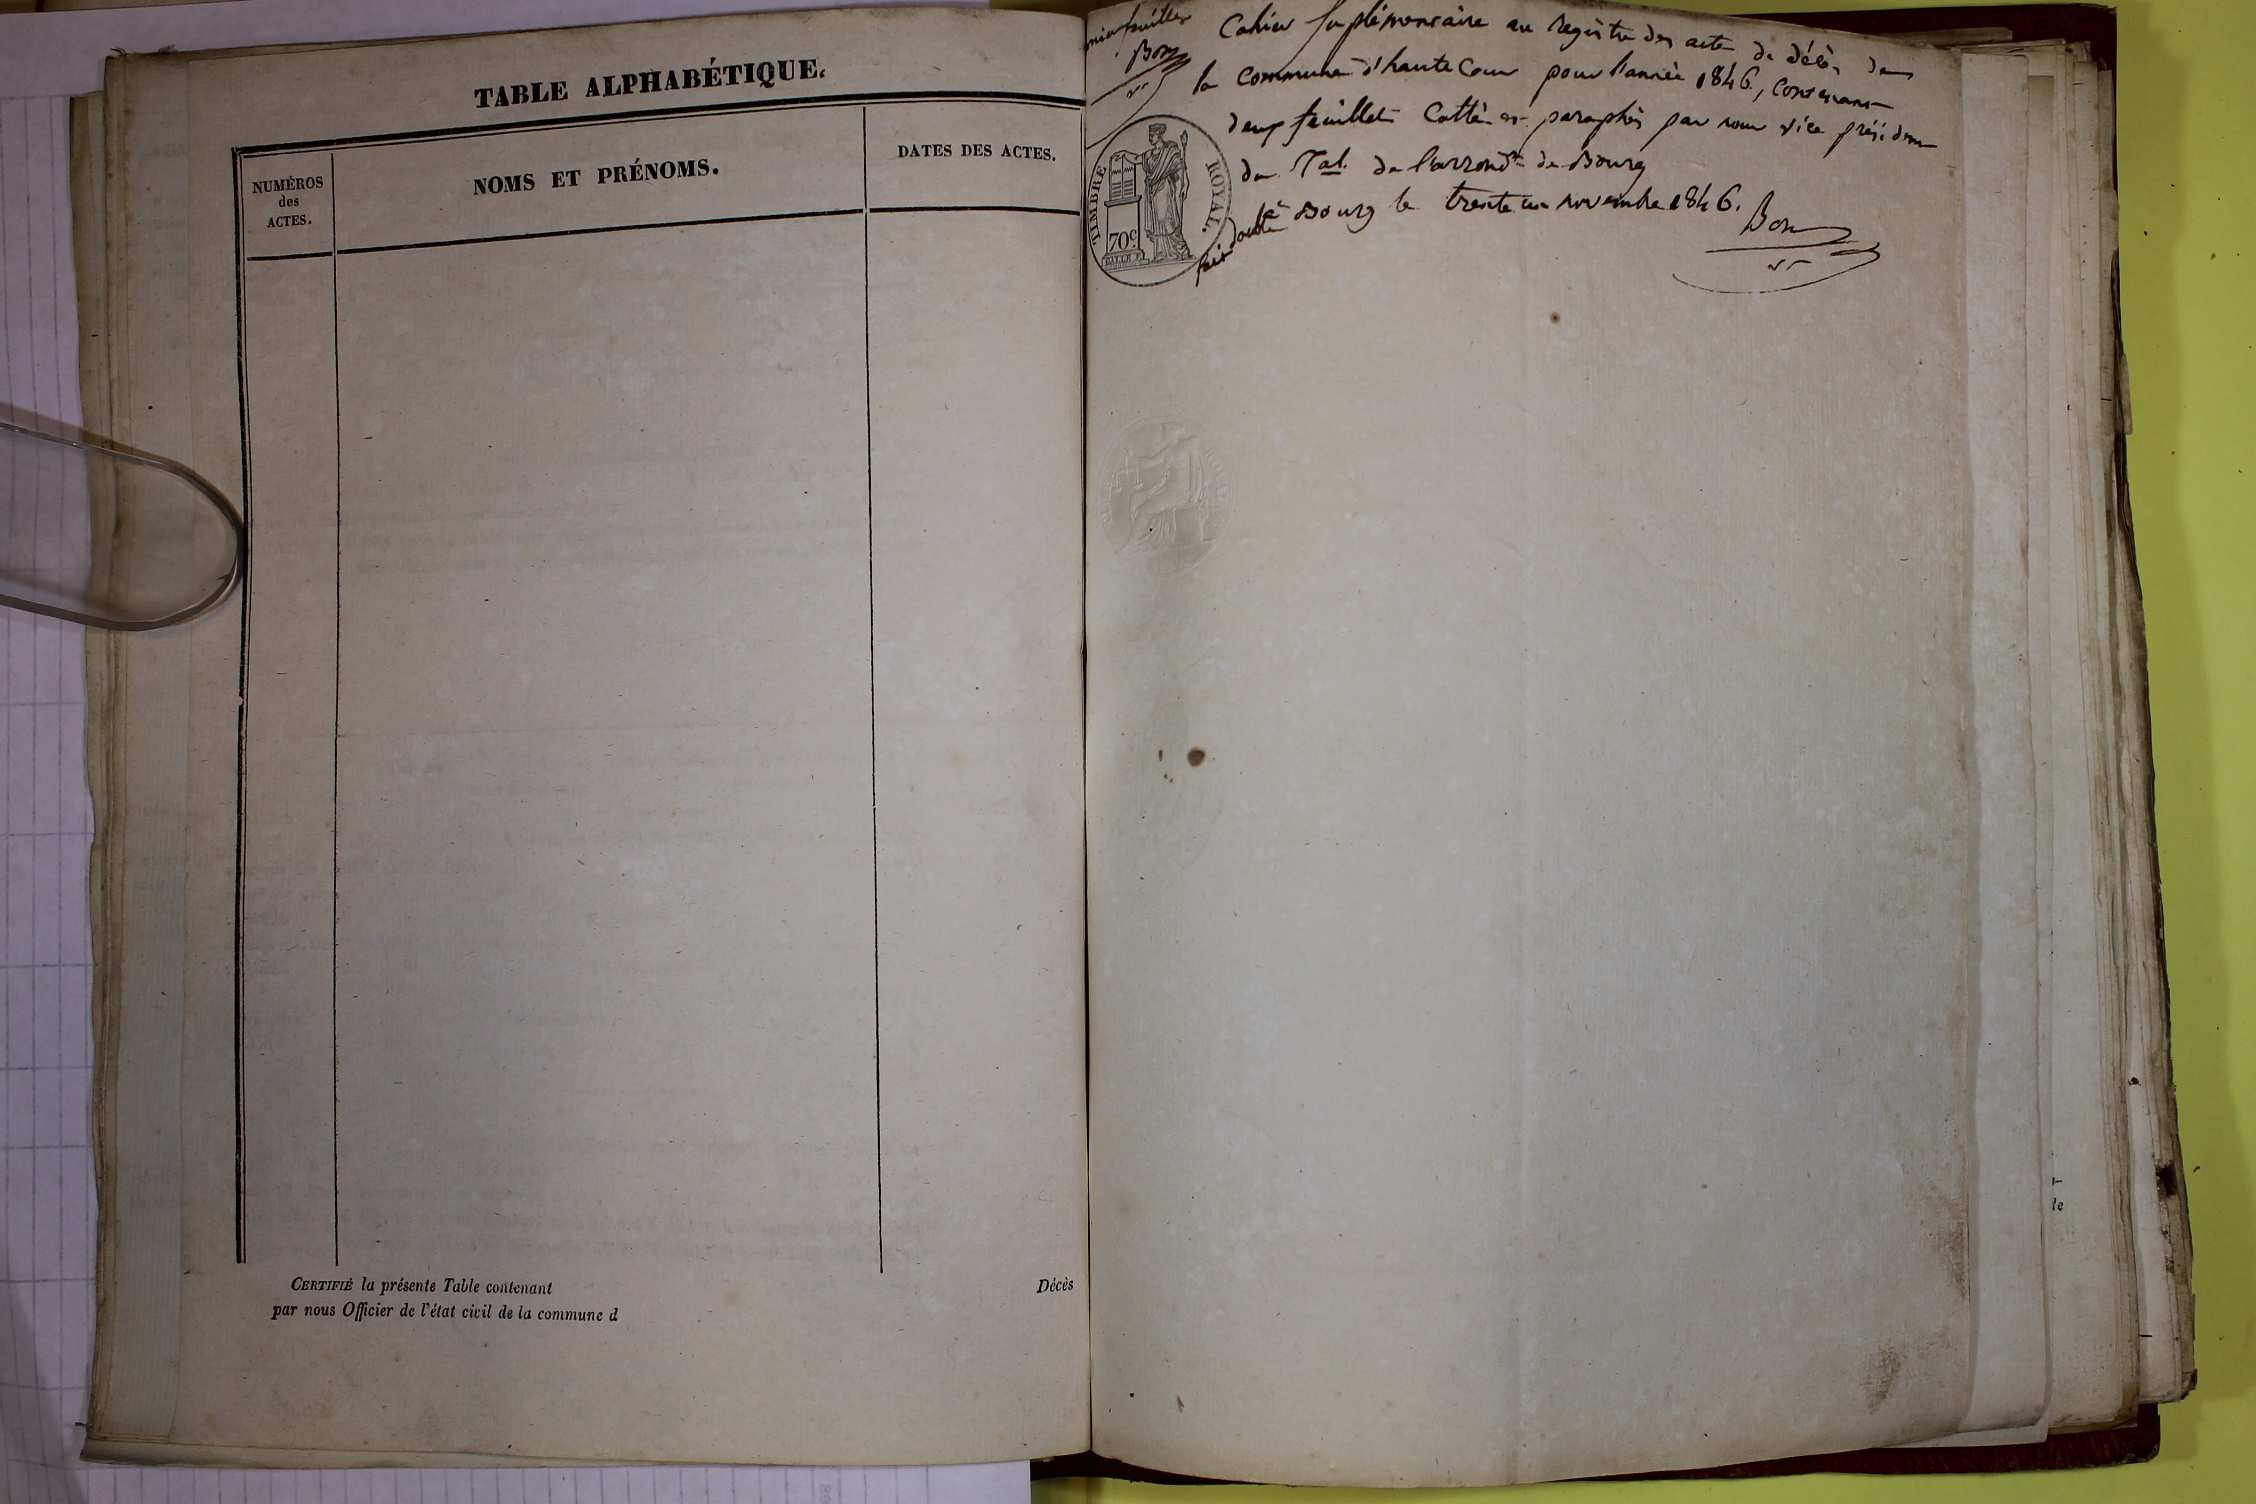 TABLE ALPHABÉTIQUE.
NUMÉROS
des
ACTES.
NOMS ET PRÉNOMS.
DATES DES ACTES.
CERTIFIÉ la présente Table contenant Décès
par nous Officier de l'état civil de la commune d
feuillet
Bon
Cahier suplémentaire au registre des actes de décès de
la commune d'hautecour pour l'année 1846, contenant
deux feuillets cottés et paraphés par nous vice président
du Tal. de l'arrondt de Bourg
fait double à Bourg le trente un novembre 1846.
Bon
TIMBRE ROYAL.
70c